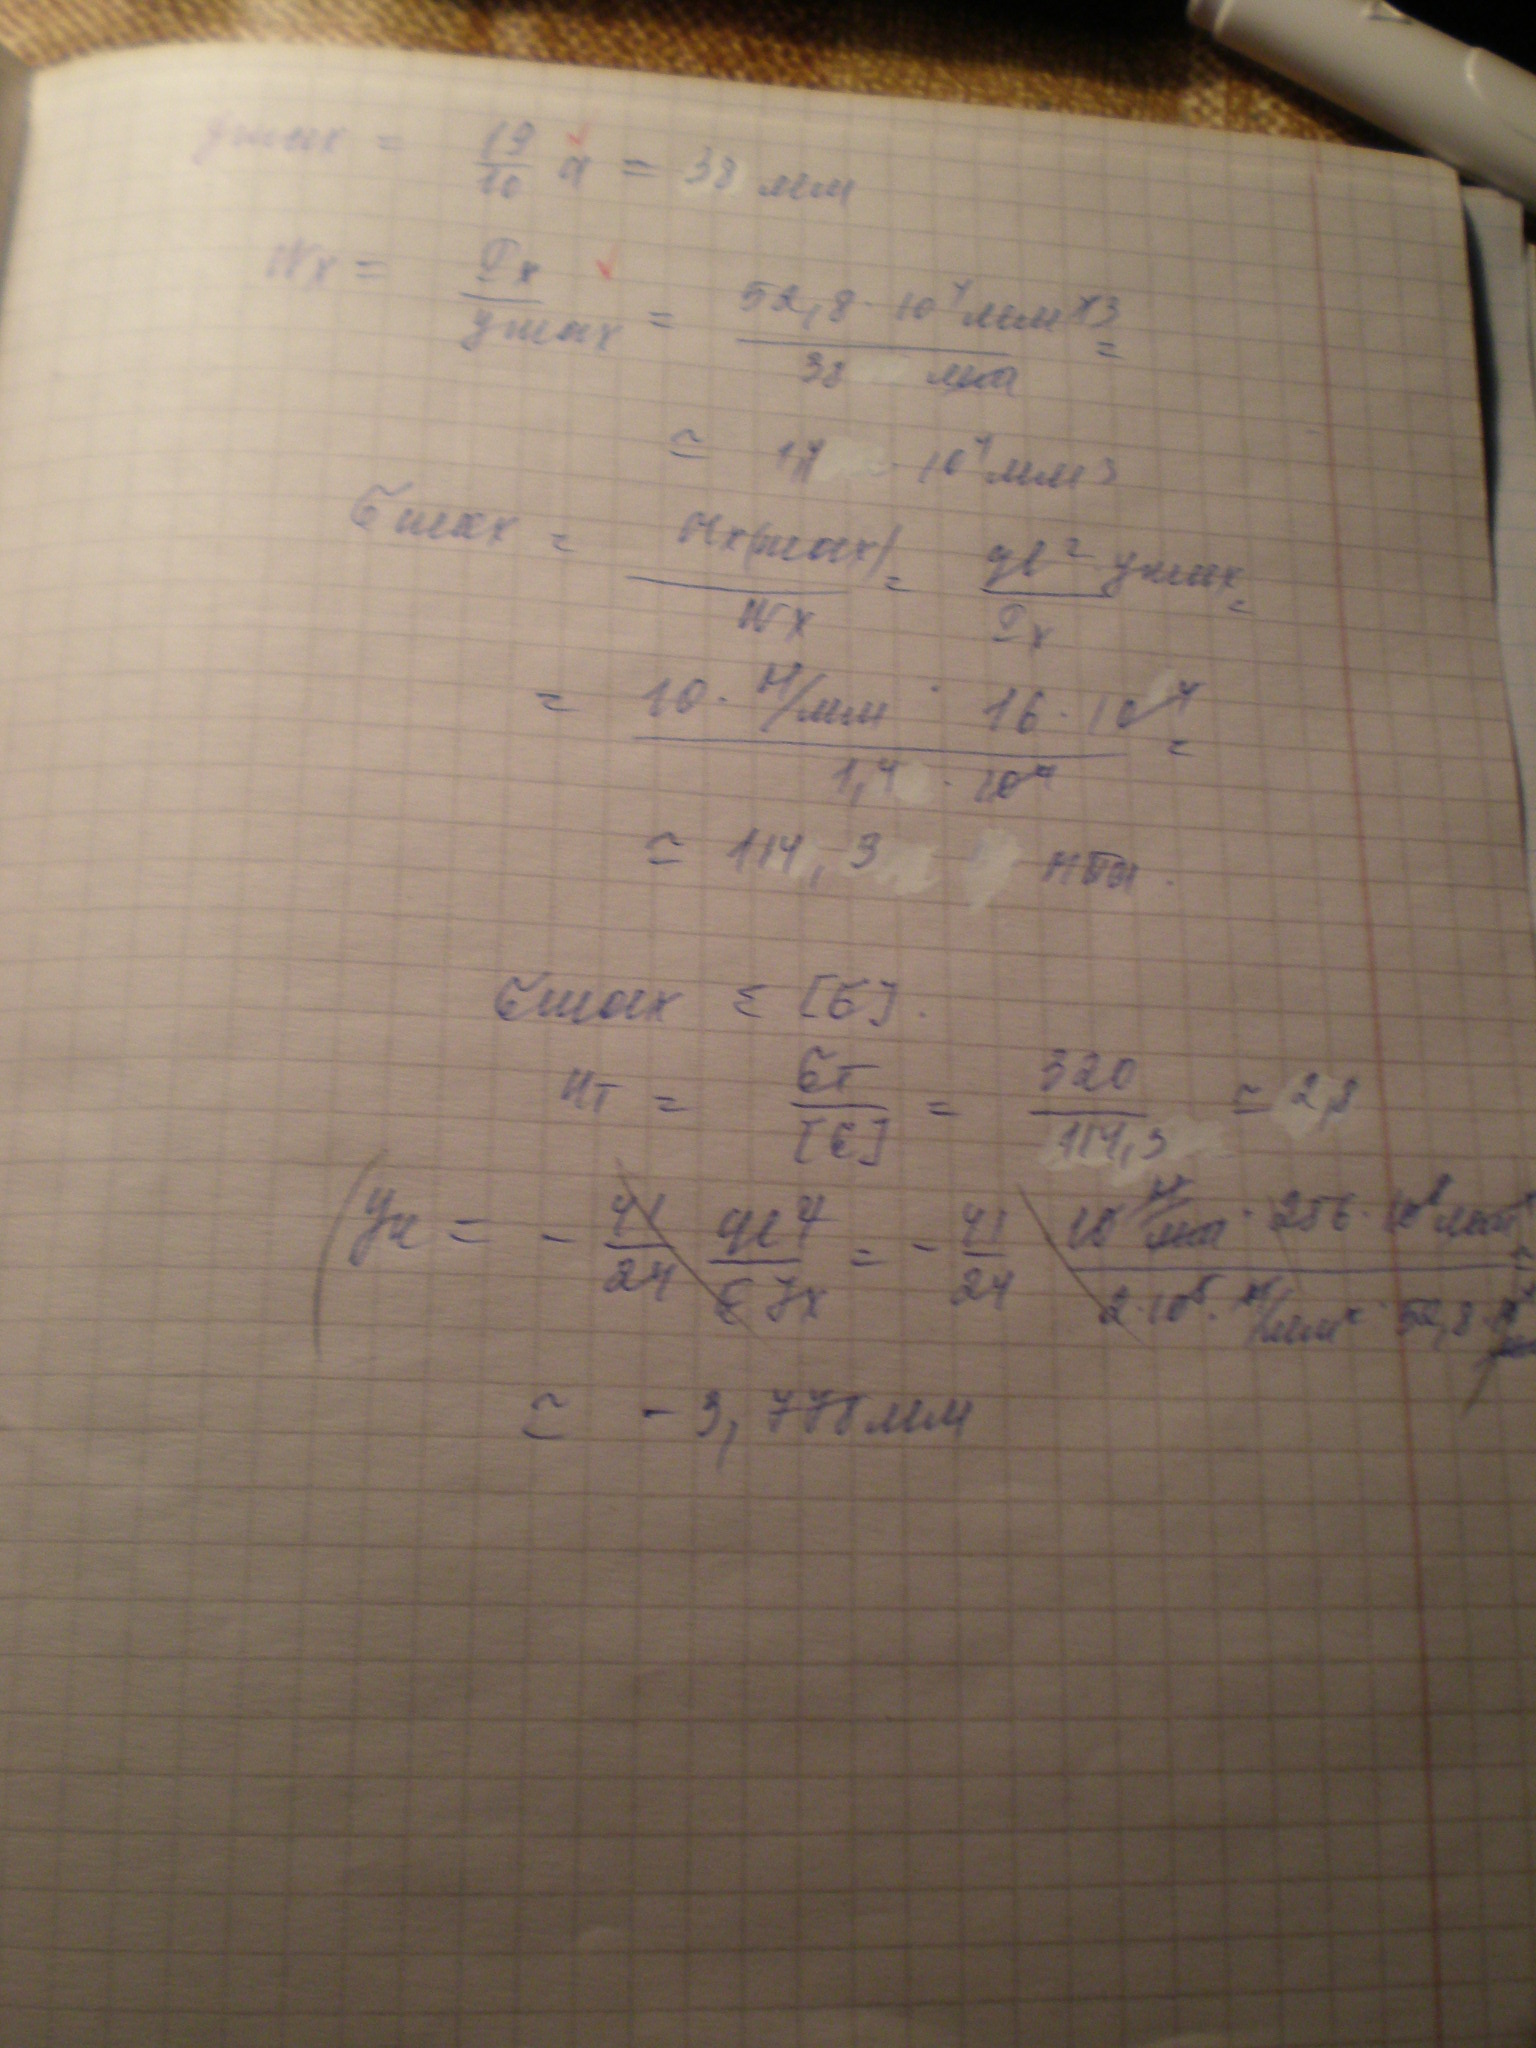 ymax = 19/10 a = 38 мм
Wx = Jx/ymax = 52,8·10⁴ мм⁴³/38 мм =
≃ 1,4·10⁴ мм³
σmax = Mx(max)/Wx = ql² ymax/Jx =
= 10·Н/мм · 16·10⁴/1,4·10⁴ =
≃ 114,3 МПа.
σmax ≤ [σ].
nт = σт/[σ] = 320/114,3 ≃ 2,8
yк = - 41/24 ql⁴/EJx = - 41/24 10 Н/мм · 256·10⁸ мм⁴/2·10⁵·Н/мм² · 52,8·10⁴ =
≃ - 3,778 мм